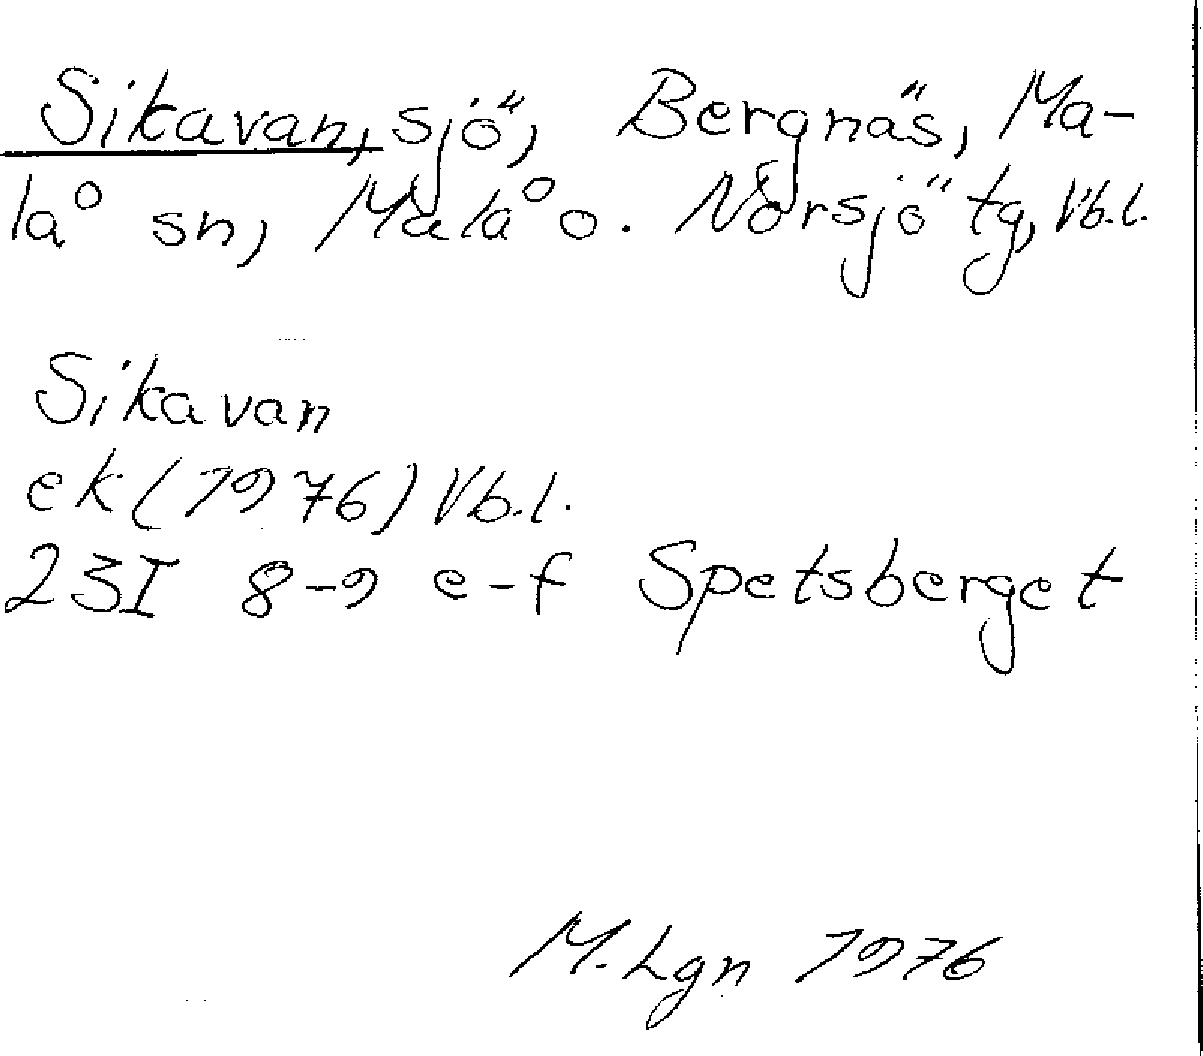 Sikavan, sjö, Bergnäs, Ma-
lå sn, Malå o. Norsjö tg, Vb.l.
Sikavan
ek (1976) Vb.l.
23I 8-9 e-f Spetsberget
M. Lgn 1976